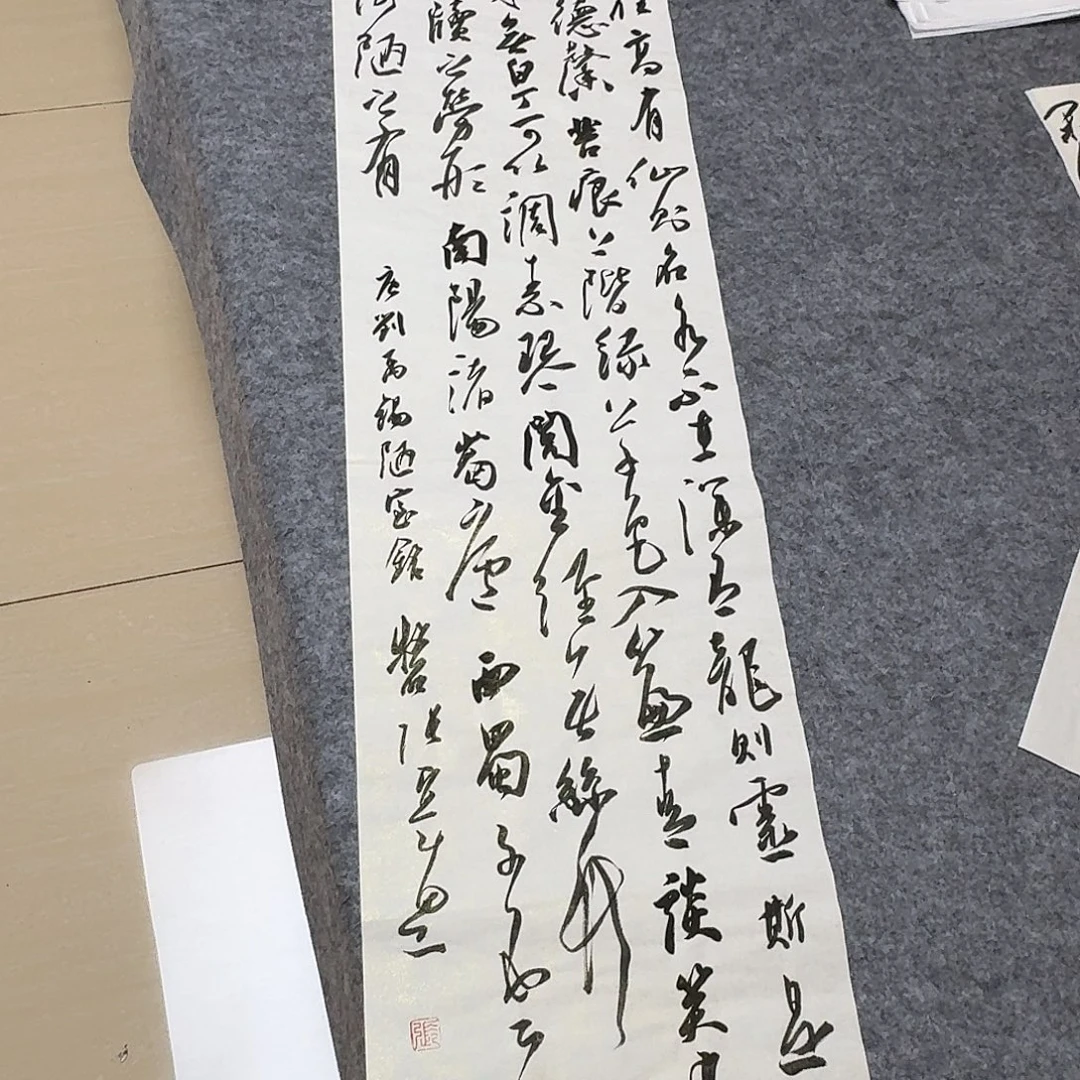 在高有仙則名水不在深有龍則靈斯是
德馨苔痕上階緑草色入簾青談笑
無白丁可以調素琴閱金經無絲竹
牘之勞形南陽諸葛廬西蜀子雲亭
何陋之有
唐劉禹錫陋室銘
張